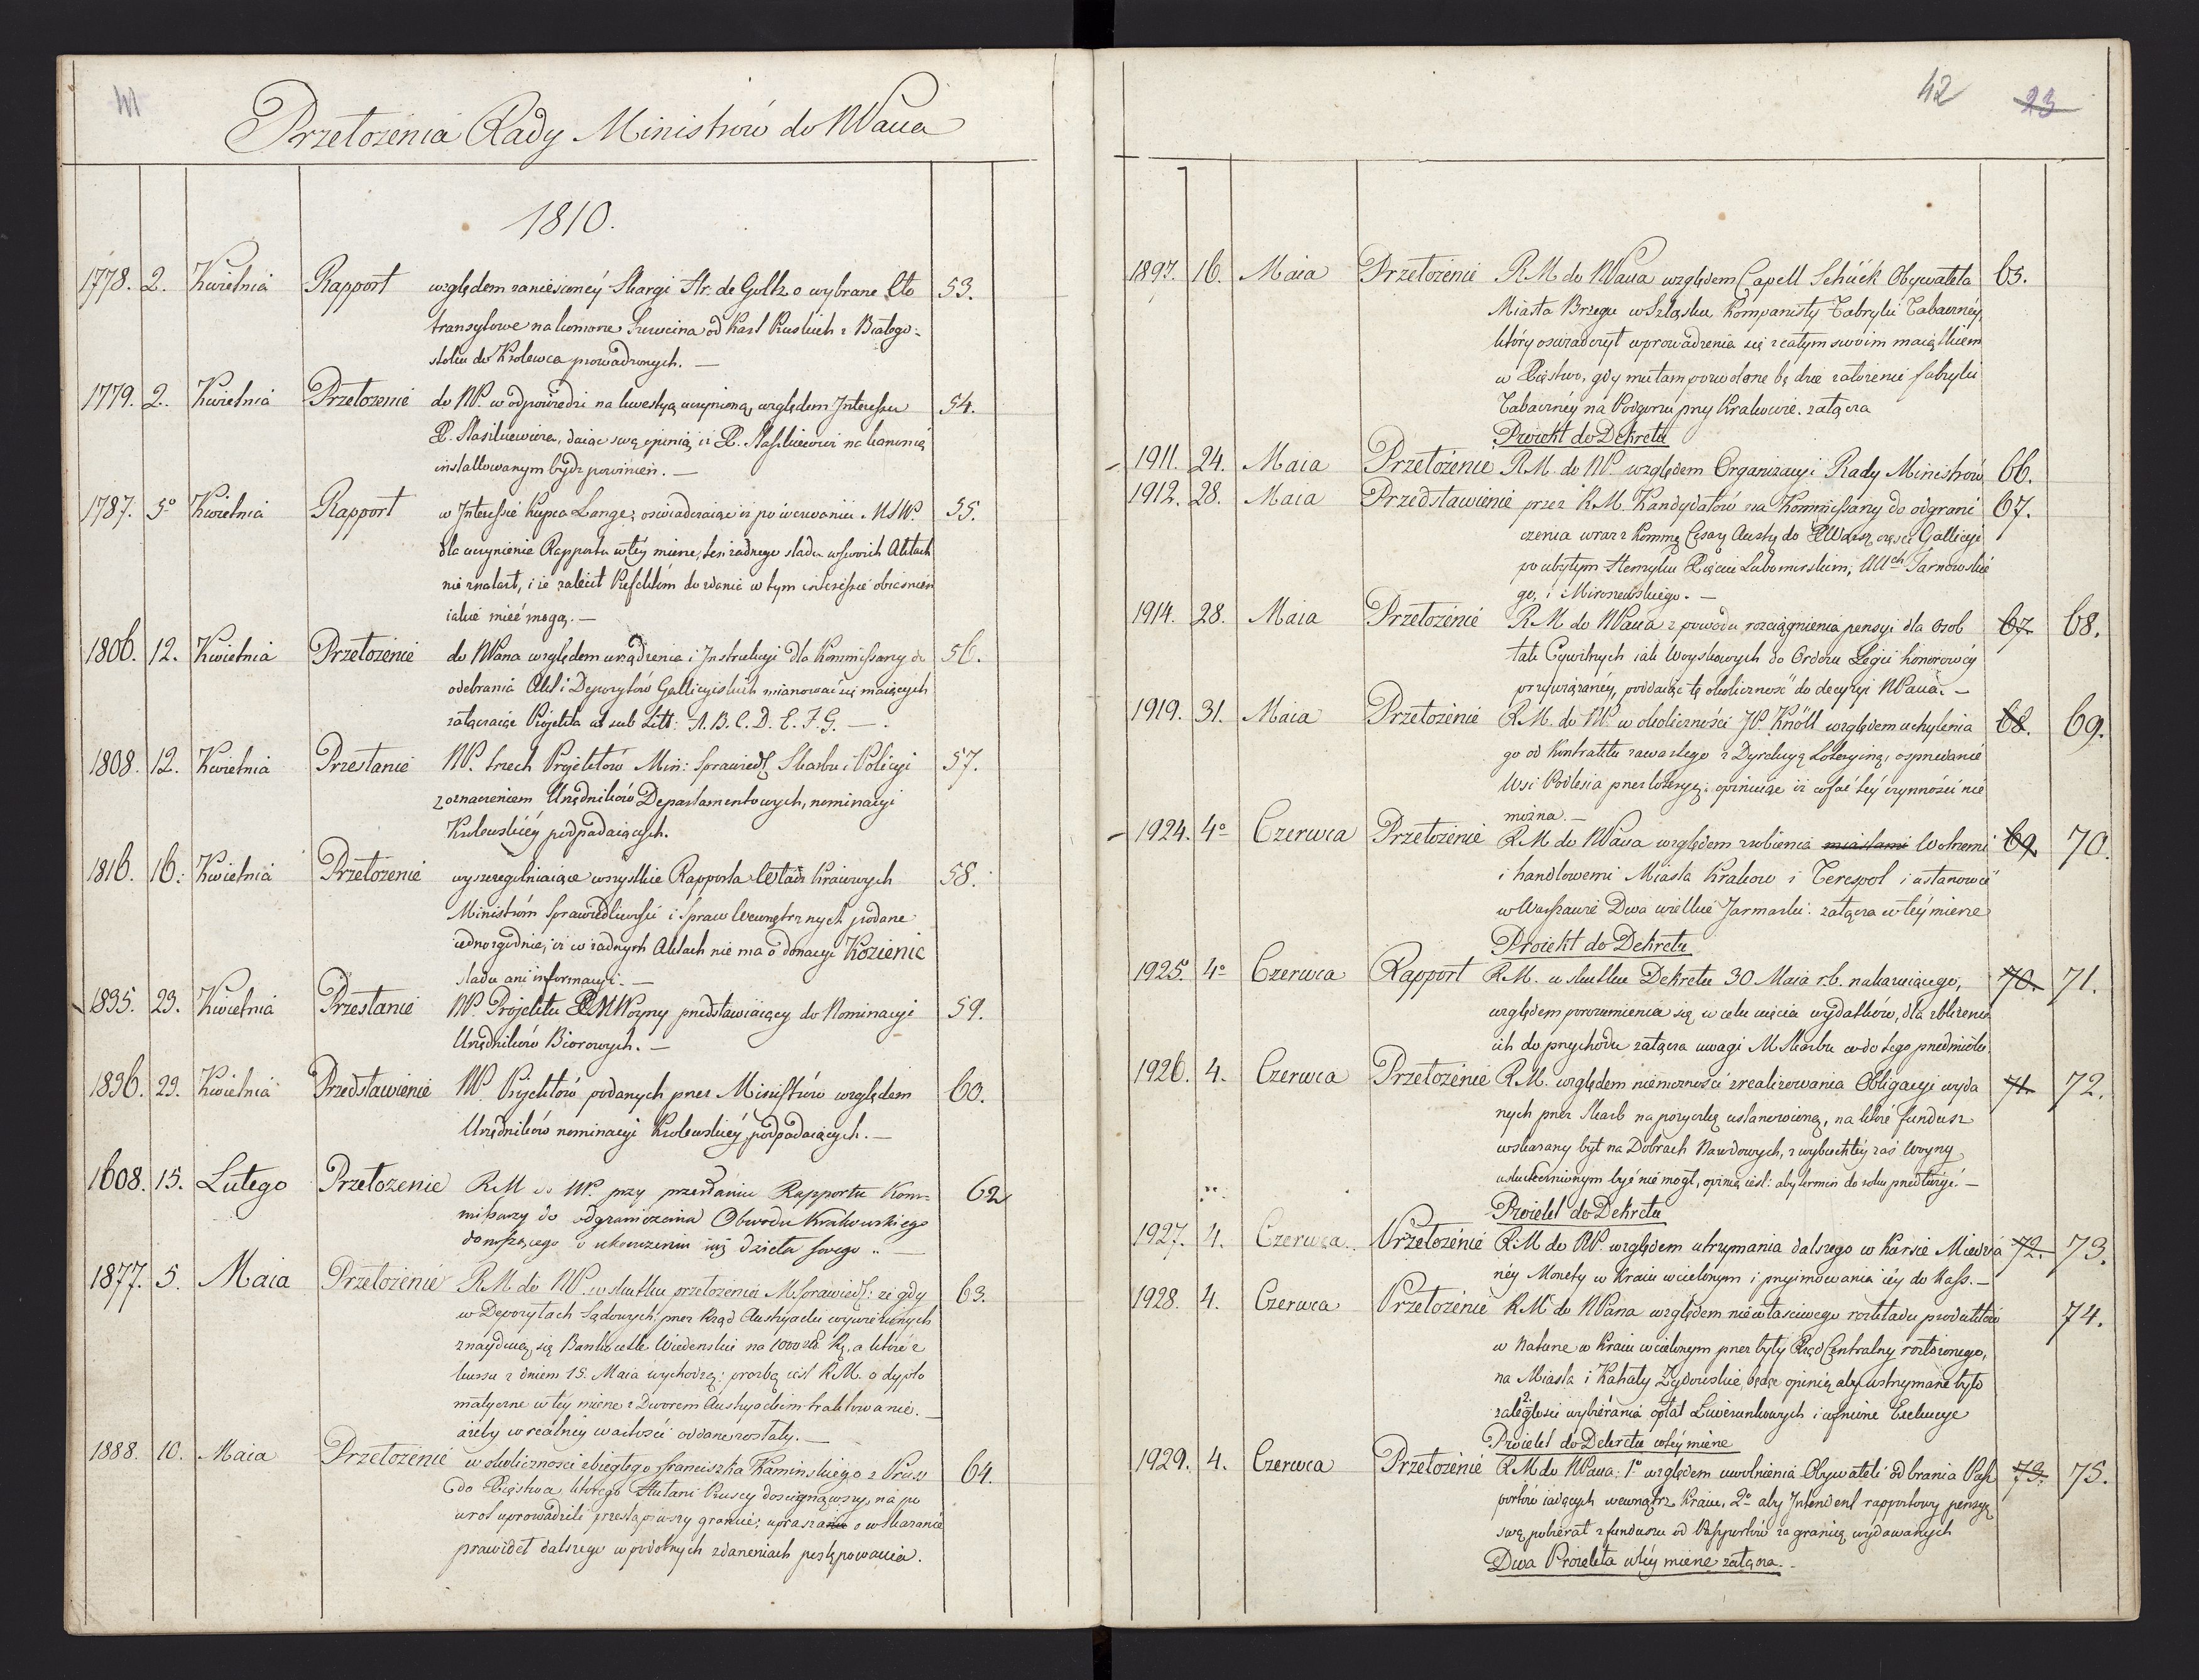 41
Przełożenia Rady Ministrów do NPana
1810.
1778. 2. Kwietnia Rapport względem zaniesionéy Skargi Hr. de Goltz o wybrane Cło 53.
transytowe na komorze Szuczina od Kass Ruskich z Białego-
stoku do Krolewca prowadzonych. —
1779. 2. Kwietnia Przełożenie do NP. w odpowiedzi na kwestyą uczynioną, względem Interessu 54.
daiąc swą opinią iż na kanonią
installowanym bydz powinien. —
1787. 5o Kwietnia Rapport w Interessie kupca Lange; oswiadczaiąc iż po wezwaniu MSW. 55.
dla uczynienia Rapportu w téy mierze, ten żadnego sladu w swoich Aktach
nie znalazł, i że zalecił Prefektóm do dania w tym interessie obiasnień
iakie mieć mogą. —
1806. 12. Kwietnia Przełożenie do NPana względem urządzenia i Instrukcyi dla Kommissarzy do 56.
odebrania Akt i Depozytów Gallicyiskich mianować się maiących
załączaiąc Projekta ut sub Litt: A. B. C. D. E. F. G. —
1808. 12. Kwietnia Przesłanie NP. trzech Projektów Min: Sprawiedl. Skarbu i Policyi 57.
z oznaczeniem Urzędników Departamentowych, nominacyi
Krolewskiéy podpadaiących.
1816. 16. Kwietnia Przełożenie wyszczegulniaiące wszystkie Rapporta Władz Kraiowych 58.
Ministróm Sprawiedliwości i Spraw Wewnętrznych podane
iednozgodnie, iż w żadnych Aktach nie ma o donacyi Kozienic
sladu ani informacyi. —
1835. 23. Kwietnia Przesłanie NP. Projektu MWoyny przedstawiaiący do Nominacyi 59.
Urzędników Biorowych. —
1836. 23. Kwietnia Przedstawienie NP. Projektów podanych przez Ministrów względem 60.
Urzędników nominacyi Krolewskiéy podpadaiących. —
1608. 15. Lutego Przełożenie RM do NP. przy przesłaniu Rapportu Kom- 62
missarzy do odgraniczenia Obwodu Krakowskiego
donoszącego o ukonczeniu iuż dzieła swego ..
1877. 5. Maia Przełożenie RM do NP. w skutku przełożenia MSprawiedl: że gdy 63.
w Depozytach Sądowych przez Rząd Austryacki wywiezionych
znayduią się Bankocetle Wiedenskie na 1000 a które z
kursu z dniem 15. Maia wychodzą: prozbą iest RM. o dyplo
matyczne w téy mierze z Dworem Austryackim traktowanie.
ażeby w realnéy wartosci oddane zostały. —
1888. 10. Maia Przełożenie w okoliczności zbiegłego Franciszka Kaminskiego z Prus 64.
do Xięstwa, którego Hułani Pruscy doscignąwszy, na po
wrot uprowadzili przestąpiwszy granicę; uprasza o wskazanie
prawideł dalszego w podobnych zdarzeniach postępowania.
42 23
1897. 16. Maia Przełożenie RM do NPana względem Capell Schück Obywatela 65.
Miasta Brzegu w Szląsku Kompanisty Fabryki Tabaczney,
który oswiadczył wprowadzenia się z całym swoim maiątkiem
w Xięstwo, gdy mu tam pozwolone będzie założenie fabryki
Tabaczney na Podgorzu przy Krakowie. załącza
Proiekt do Dekretu
1911. 24. Maia Przełożenie RM. do NP. względem Organizacyi Rady Ministrów 66.
1912. 28. Maia Przedstawienie przez RM. Kandydatów na Kommissarzy do odgrani 67.
czenia wraz z Kommą Cesarz Austry do XWarsz części Gallicyi
po ubytym Henryku Xięciu Lubomirskim, Tarnowskie
go, i Miroszewskiego. —
1914. 28. Maia Przełożenie RM do NPana z powodu rozciągnienia pensyi dla osob 67. 68.
tak Cywilnych iak Woyskowych do Orderu Legii honorowéy
przywiązanéy, poddaiąc tę okoliczność do decyzyi NPana. —
1919. 31. Maia Przełożenie RM. do NP. w okoliczności JP. Knöll względem uchylenia 68. 69.
go od Kontraktu zawartego z Dyrekcyą Loteryiną, o sprzedanie
Wsi Podlesia przez loteryę; opiniuiąc iż cofać téy czynności nie
można. —
1924. 4o Czerwca Przełożenie RM do NPana względem zrobienia miastami Wolnemi 69. 70.
i handlowemi Miasta Krakow i Terespol i ustanowić
w Warszawie Dwa wielkie Jarmarki. załącza w téy mierze
Proiekt do Dekretu
1925. 4o Czerwca Rapport RM. w skutku Dekretu 30 Maia r.b. nakazuiącego, 70. 71.
względem porozumienia się w celu cięcia wydatków, dla zbliżenia
ich do przychodu załącza uwagi MSkarbu co do tego przedmiotu.
1926. 4. Czerwca Przełożenie RM. względem niemożności zrealizowania Obligacyi wyda 71. 72.
nych przez Skarb na pożyczkę ustanowioną, na które fundusz
wskazany był na Dobrach Narodowych, z wybuchłéy zaś woyny
uskutecznionym być nie mogł, opinią iest: aby termin do roku przedłużyć —
Proiekt do Dekretu
1927. 4. Czerwca Przełożenie RM do NP. względem utrzymania dalszego w kursie Miedzia 72. 73.
néy Monety w Kraiu wcielonym i przyimowania iéy do Kass. —
1928. 4. Czerwca Przełożenie RM do NPana względem niewłasciwego rozkładu produktów 74.
w Naturze w Kraiu wcielonym przez były Rząd Centralny rozłożonego,
na Miasta i Kahały Zydowskie, będąc opinią aby wstrzymane było
zaległości wybierania opłat Liwerunkowych i cofnione Exekucye
Proiekt do Dekretu w téy mierze
1929. 4. Czerwca Przełożenie RM do NPana: 1o względem uwolnienia Obywateli od brania Pasz 73. 75.
portów iadących wewnątrz Kraiu, 2o aby Intendent rapportowy pensyą
swą pobierał z funduszu od Paszportów za granicę wydawanych
Dwa Proiekta w téy mierze załącza. —